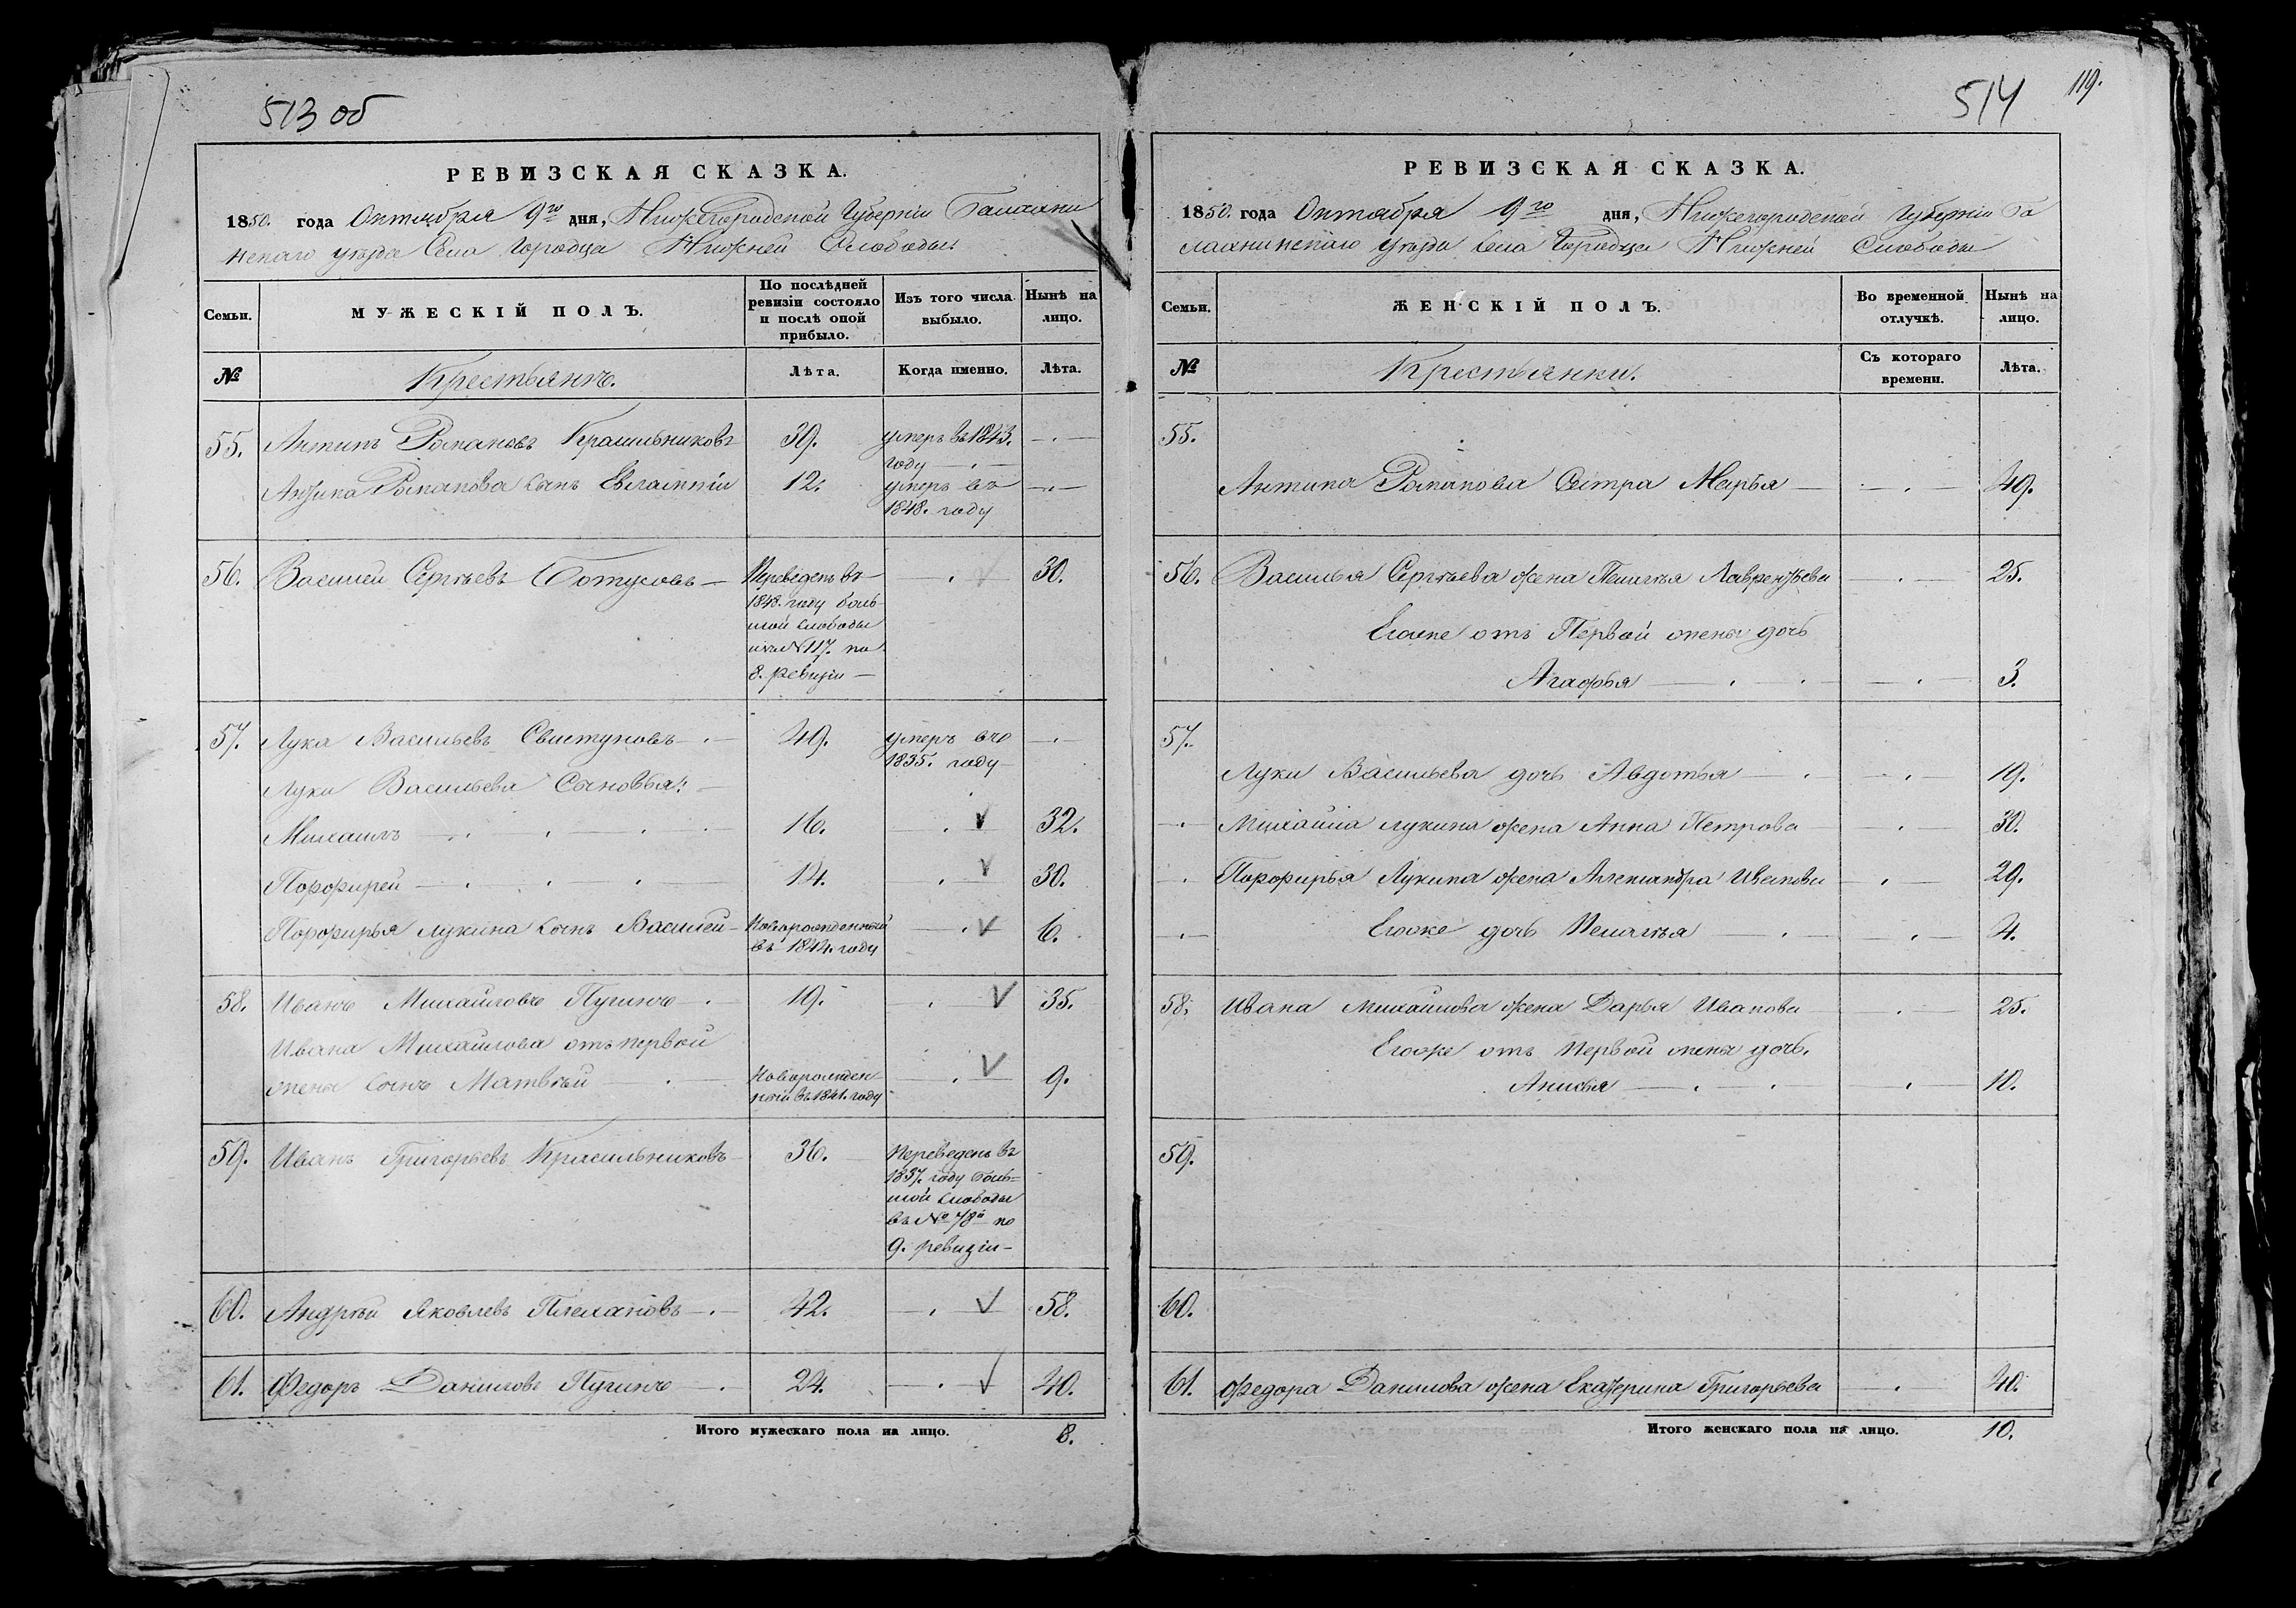 513 об
РЕВИЗСКАЯ СКАЗКА.
1850. года Октября 9го дня, Нижегородской Губерніи Балахни
нскаго уѣзда Села Городца Нижней Слободы
Семьи. МУЖЕСКІЙ ПОЛЪ. По послѣдней ревизіи состояло и послѣ оной прибыло. Изъ того числа выбыло. Нынѣ на лицо.
№ Крестьянъ. Лѣта. Когда именно. Лѣта.
55. Антипъ Романовъ Красильниковъ 39. умеръ въ 1843. году
Антипа Романова сынъ Евлампій 12. умеръ въ 1848. году
56. Василей Сергѣевъ Ботусовъ Переведенъ въ 30.
1848. году Боль-
шой слободы
изъ № 117. по
8. ревизіи
57. Лука Васильевъ Свистуновъ 49. умеръ въ 1835. году
Луки Васильева Сыновья:
Михаилъ 16. 32.
Порфирей 14. 30.
Порфирья Лукина сынъ Василей Новорожденный въ 1844. году 6.
58. Иванъ Михайловъ Пугинъ 19. 35.
Ивана Михайлова отъ первой
жены сынъ Матвѣй Новорожденный въ 1841. году 9.
59. Иванъ Григорьевъ Красильниковъ 36. Переведенъ въ
1837. году Боль-
шой слободы
въ № 78й по
9. ревизіи
60. Андрѣй Яковлевъ Плехановъ 42. 58.
61. Федоръ Даниловъ Пугинъ 24. 40.
Итого мужескаго пола на лицо. 8.
514 119.
РЕВИЗСКАЯ СКАЗКА.
1850 года Октября 9го дня, Нижегородской Губерніи Ба
лахнинскаго уѣзда Села Городца Нижней Слободы
Семьи. ЖЕНСКІЙ ПОЛЪ. Во временной отлучкѣ. Нынѣ на лицо.
№ Крестьянки. Съ котораго времени. Лѣта.
55.
Антипа Романова Сестра Марья 49.
56. Василья Сергѣева жена Пелагѣя Лаврентьева 25.
Егоже отъ Первой жены дочь
Агафья 3.
57.
Луки Васильева дочь Авдотья 19.
Михайла Лукина жена Анна Петрова 30.
Порфирья Лукина жена Александра Иванова 29.
Егоже дочь Пелагѣя 4.
58. Ивана Михайлова жена Дарья Иванова 25.
Егоже отъ Первой жены дочь.
Анисья 10.
59.
60.
61. Федора Данилова жена Екатерина Григорьева 40.
Итого женскаго пола на лицо. 10.